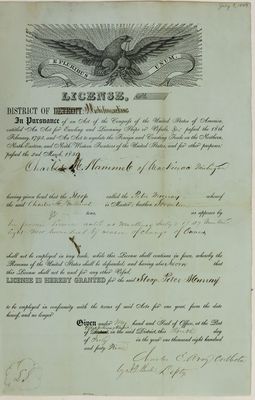 July 3, 1849
E PLURIBUS UNUM.
LICENSE,
DISTRICT OF DETROIT: Michilimackinac
In Pursuance of an Act of the Congress of the United States of America,
entitled "An Act for Enroling and Licensing Ships or Vessels, &c., passed the 18th
February, 1793, and "An Act to regulate the Foreign and Coasting Trade on the Northern,
North-Eastern, and North-Western Frontiers of the United States, and for other purposes,"
passed the 2nd March, 1831
Charles M. Hammond of Mackinac Michigan
having given bond that the Sloop called the Peter Murray whereof
the said Charles M. is Master,
was as appears by
of Change of Owner
shall not be employed in any trade, while this License shall continue in force, whereby the
Revenue of the United States shall be defrauded; and having also Sworn that
this License shall not be used for any other Vessel,
LICENSE IS HEREBY GRANTED for the said Sloop Peter Murray
to be employed in conformity with the terms of said Acts for one year, from the date
hereof, and no longer.
Given under my hand and Seal of Office, at the Port
of in the said District, this day
of July in the year one thousand eight hundred
and forty Nine
Charles E. Avery Collector
Depty